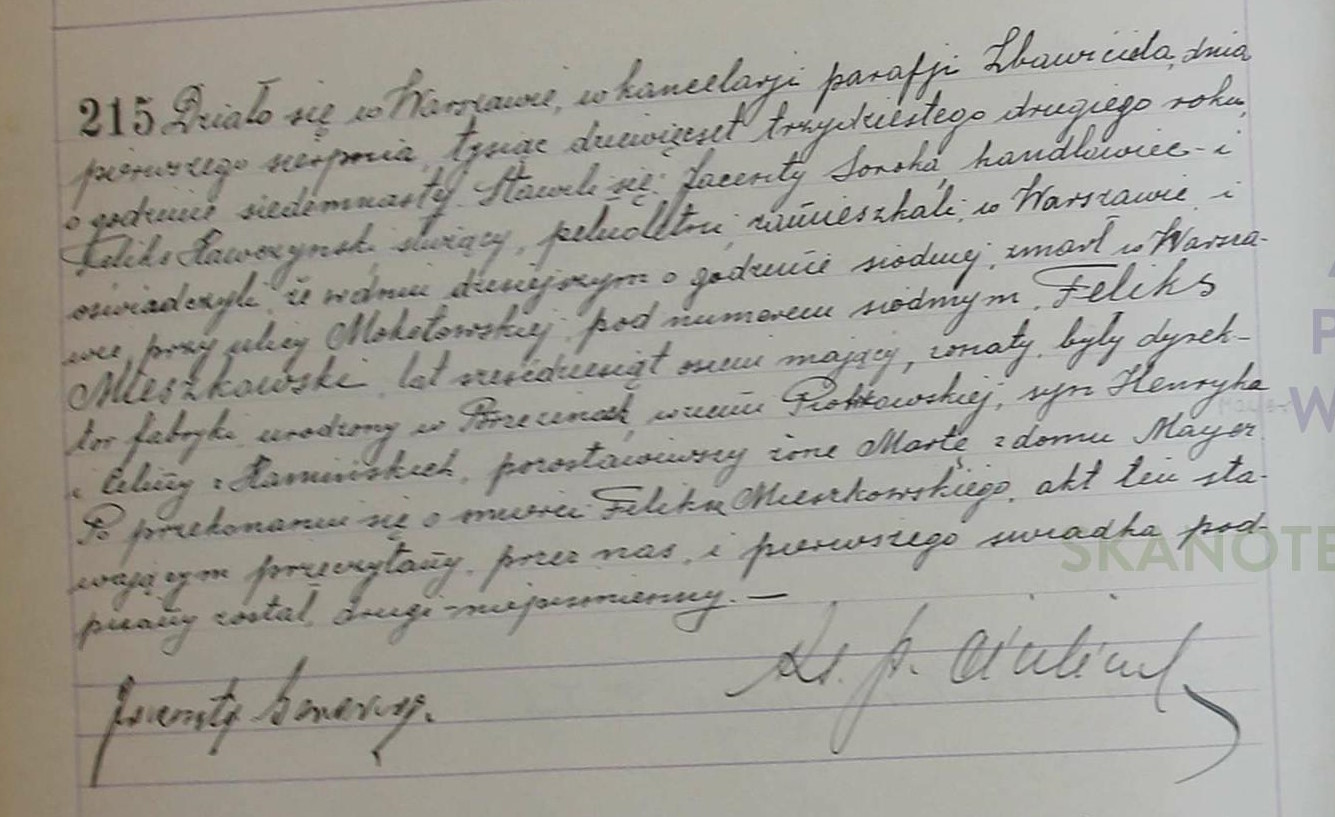 215 Działo się w Warszawie, w kancelarji parafji Zbawiciela, dnia
pierwszego sierpnia, tysiąc dziewięćset trzydziestego drugiego roku,
o godzinie siedemnastej. Stawili się: Jacenty Soroka, handlowiec i
Feliks Kawczyński, służący, pełnoletni, zamieszkali w Warszawie, i
oświadczyli, że w dniu dzisiejszym o godzinie siódmej, zmarł w Warsza-
wie, przy ulicy Mokotowskiej, pod numerem siódmym, Feliks
Mieszkowski, lat sześćdziesiąt osiem mający, żonaty, były dyrek-
tor fabryki, urodzony w ziemi Piotrkowskiej, syn Henryka
i Celiny z Kamińskich, pozostawiwszy żonę Martę z domu Mayer.
Po przekonaniu się o śmierci Feliksa Mieszkowskiego, akt ten sta-
wającym przeczytany, przez nas, i pierwszego świadka pod-
pisany został, drugi niepiśmienny. —
Jacenty
Ks. p.
SKANOTE